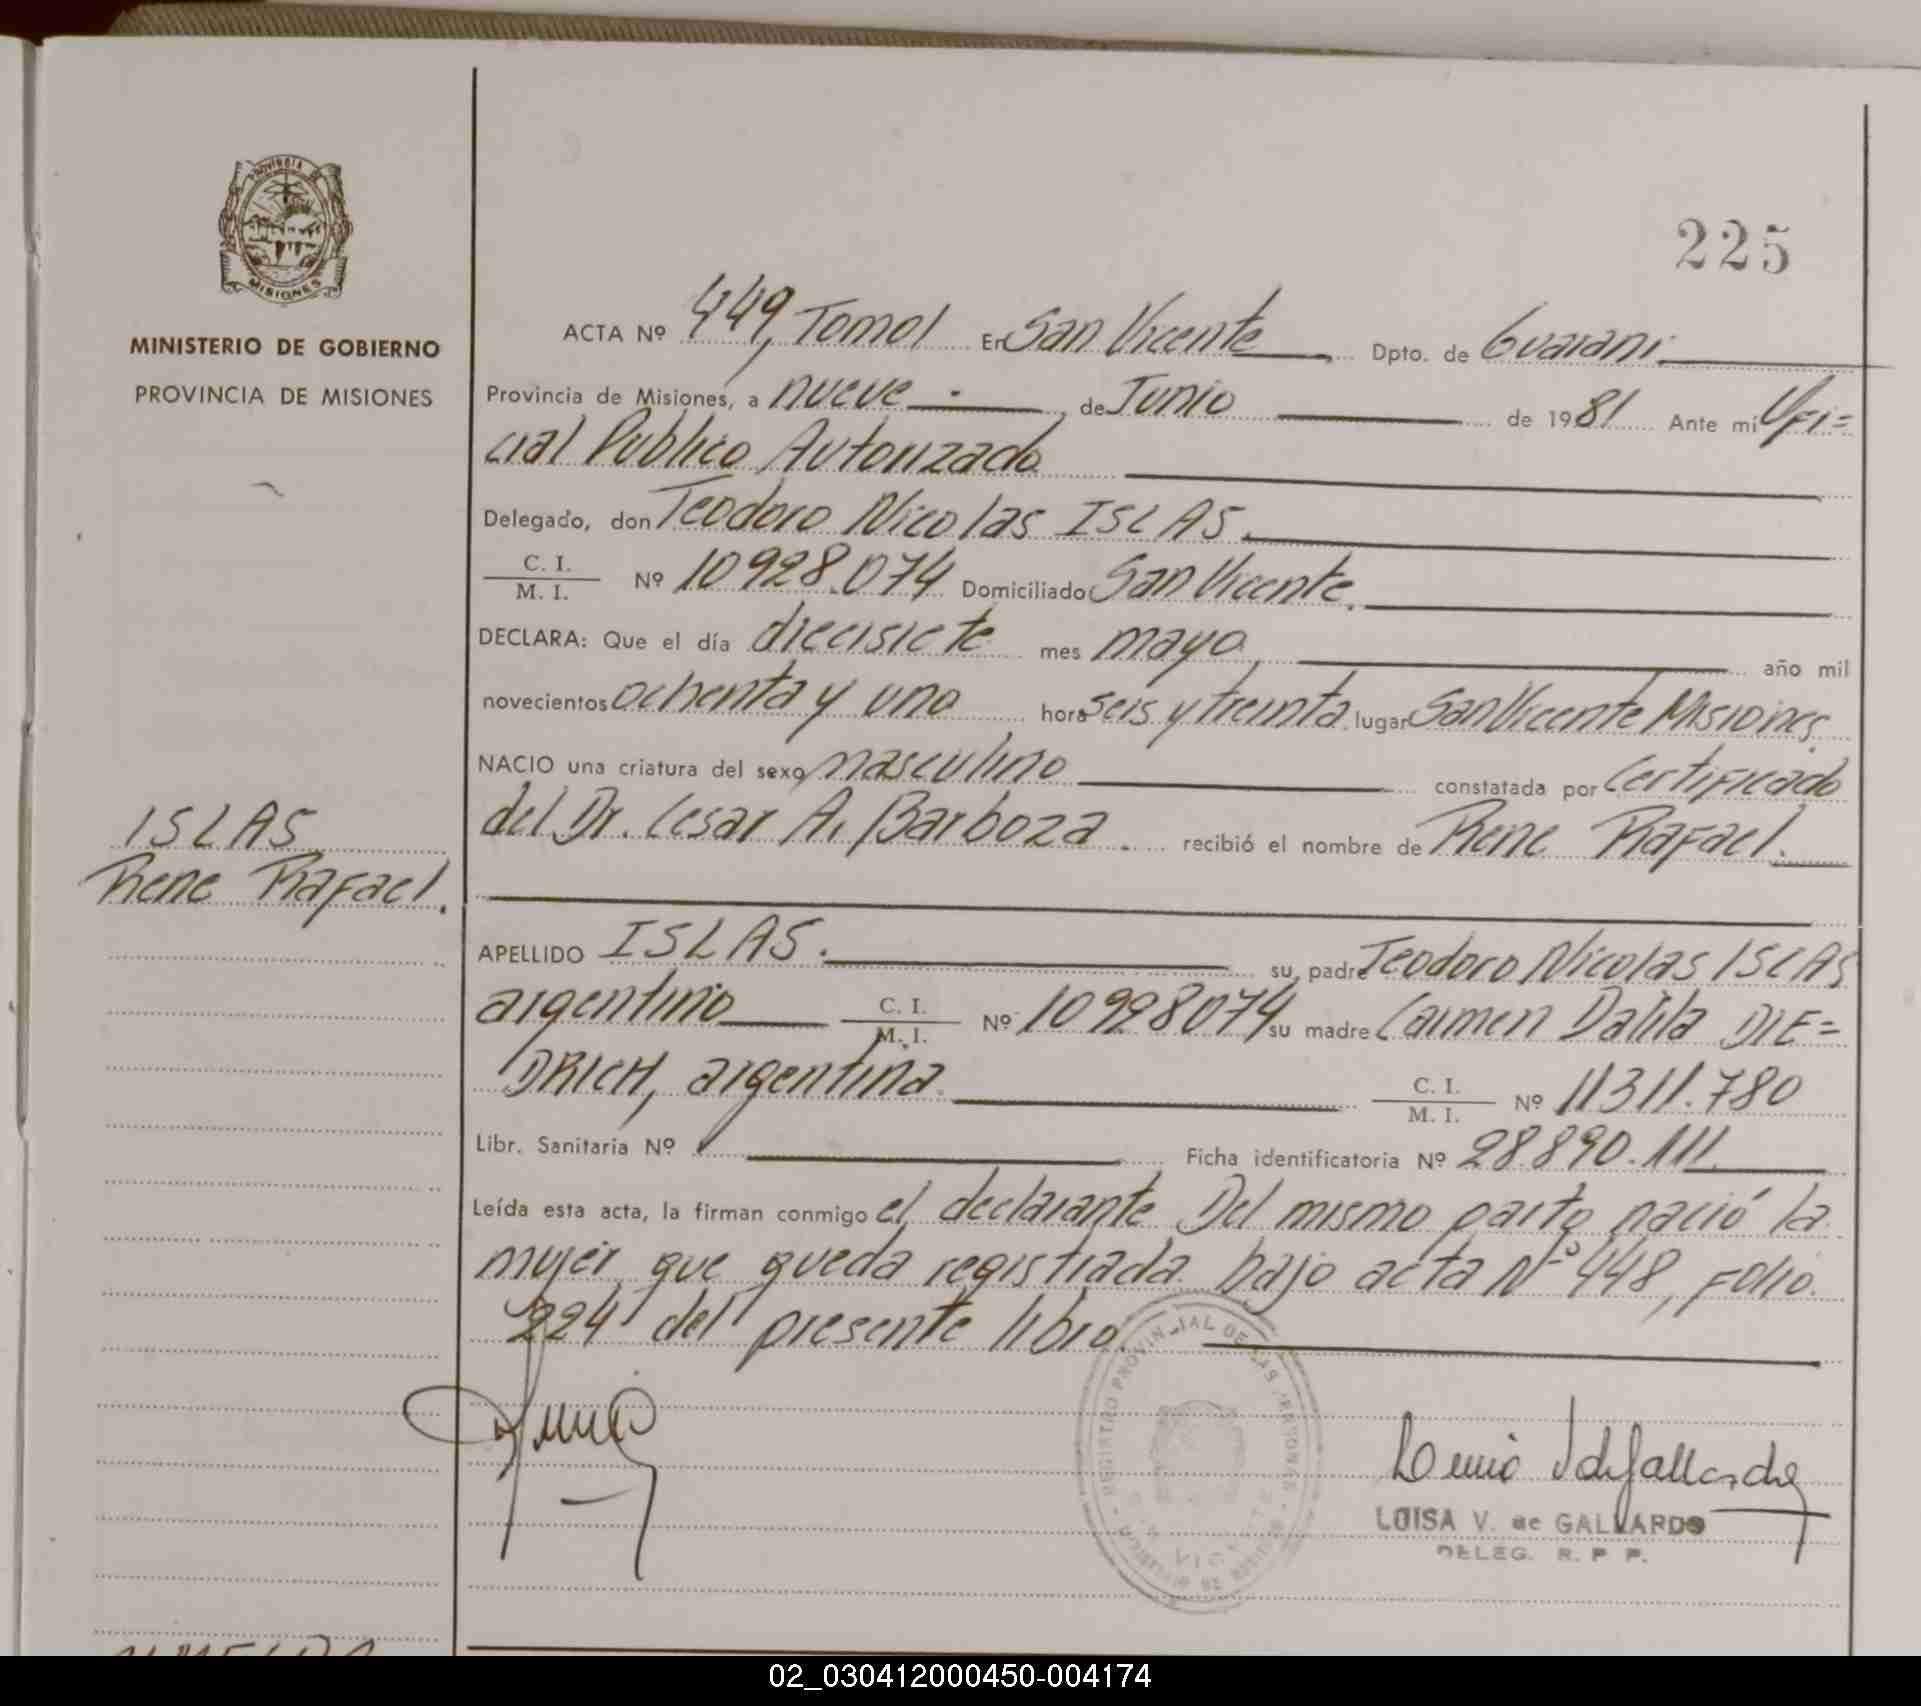 PROVINCIA DE
MISIONES
MINISTERIO DE GOBIERNO
PROVINCIA DE MISIONES
225
ACTA Nº 449, Tomo I En San Vicente Dpto. de Guarani
Provincia de Misiones, a nueve de Junio de 1981 Ante mi Ofi=
cial Publico Autorizado
Delegado, don Teodoro Nicolas ISLAS.
C. I.
M. I. Nº 10928.074 Domiciliado San Vicente.
DECLARA: Que el día diecisiete mes mayo, año mil
novecientos ochenta y uno hora seis y treinta lugar San Vicente Misiones.
NACIO una criatura del sexo masculino constatada por Certificado
del Dr. Cesar A. Barboza. recibió el nombre de Rene Rafael.
ISLAS
Rene Rafael.
APELLIDO ISLAS. su padre Teodoro Nicolas ISLAS
argentino C. I.
M. I. Nº 10928074 su madre Carmen Dalila DIE=
DRICH, argentina. C. I.
M. I. Nº 11311.780
Libr. Sanitaria Nº Ficha identificatoria Nº 28.890.111
Leída esta acta, la firman conmigo el declarante Del mismo parto nació la
mujer que queda registrada bajo acta Nº 448, Folio.
224 del presente libro.
REGISTRO PROVINCIAL DE LAS PERSONAS
LUISA V. de GALLARDO
DELEG. R. P. P.
02_030412000450-004174